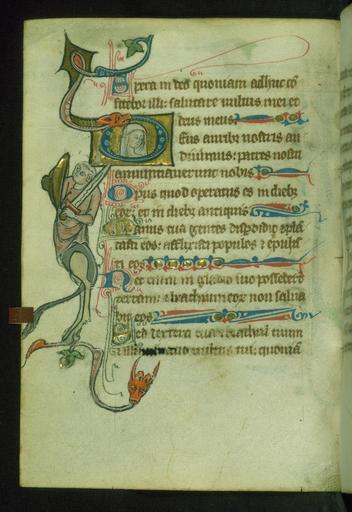 Spera in deo quoniam adhuc co
fitebor illi: salutare uultus mei et
deus meus
Deus auribz nostris au
diuimus: patres nostri
annuntiauerunt nobis
Opus quod operatus es in diebz
eorz et in diebz antiquis
Manus tua gentes disposuit
eos: afflixisti populos et
eos
Nec enim in gladio suo possederunt
terram: et brachium eorz non salua
uit eos
Sed dextera tua et brachium tuum
et illuminatio uultus tui: quoniam